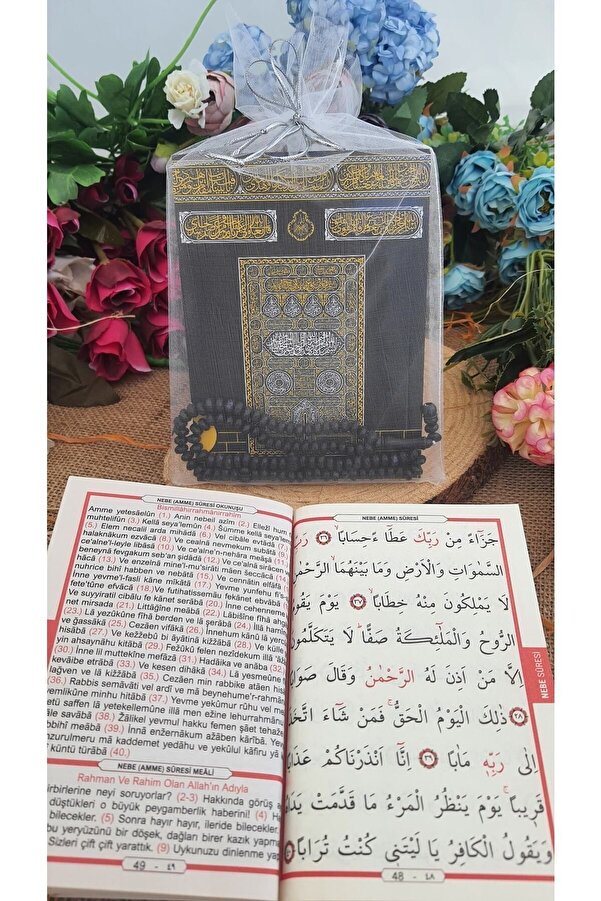 NEBE (AMME) SÛRESİ OKUNUŞU
Bismillâhirrahmânirrahîm
Amme yetesâelûn (1.) Anin nebeil azîm (2.) Ellezî hum
muhtelifûn (3.) Kellâ seya'lemûn (4.) Summe kellâ seya'lemûn
(5.) Elem necalil arda mihâdâ (6.) Vel cibâle evtâdâ (7.)
halaknâkum ezvâcâ (8.) Ve cealnâ nevmekum subâtâ (9.)
ce'alne'l-leyle libâsâ (10.) Ve ce'alne'n-nehâra meâşâ (11.)
beneynâ fevgakum seb'an şidâdâ (12.) Ve ce'alnâ sirâcen
(13.) Ve enzelnâ mine'l-mu'sirâti mâen seccâcâ (14.)
nuhrice bihî habben ve nebâtâ (15.) Ve cennâtin elfâfâ
İnne yevme'l-fasli kâne mîkâtâ (17.) Yevme yunfehu
fete'tûne efvâcâ (18.) Ve futihatissemâu fekânet ebvâbâ
Ve suyyiratil cibâlu fe kânet serâbâ (20.) İnne cehenneme
net mirsada (21.) Littâğîne meâbâ (22.) Lâbisîne fîhâ
(23.) Lâ yezûkûne fîhâ berden ve lâ şerâbâ (24.)
ve ğassâkâ (25.) Cezâen vifâkâ (26.) İnnehum kânû lâ
hisâbâ (27.) Ve kezzebû bi âyâtinâ kizzâbâ (28.) Ve
yin ahsaynâhu kitâbâ (29.) Fezûkû felen nezîdekum illâ
(30.) İnne lil muttekîne mefâzâ (31.) Hadâika ve
kevâibe etrâbâ (33.) Ve kesen dihâkâ (34.) Lâ yesmeûne
lağven ve lâ kizzâbâ (35.) Cezâen min rabbike atâen
(36.) Rabbis semâvâti vel ardı ve mâ beynehume'r-rahmâni
yemlikûne minhu hitâbâ (37.) Yevme yekûmur rûhu vel
tu saffen lâ yetekellemûne illâ men ezine lehurrahmânu
âle savâbâ (38.) Zâlikel yevmul hakku femen şâet
bbihî meâbâ (39.) İnnâ enzernâkum azâben karîbâ.
nzurulmeru mâ kaddemet yedâhu ve yekûlul kâfiru yâ
î küntü türâbâ (40.)
NEBE (AMME) SÛRESİ MEÂLİ
Rahman Ve Rahim Olan Allah'ın Adıyla
irbirlerine neyi soruyorlar? (2-3) Hakkında görüş
düştükleri o büyük peygamberlik haberini! (4)
bilecekler. (5) Sonra hayır hayır, ileride bilecekler.
bu yeryüzünü bir döşek, dağları birer kazık
Sizleri çift çift yarattık. (9) Uykunuzu dinlenme
49 - ٤٩
NEBE (AMME) SÛRESİ
جَزَٓاءً مِنْ رَبِّكَ عَطَٓاءً حِسَابًا ﴿٣٦﴾ رَبِّ
السَّمٰوَاتِ وَالْاَرْضِ وَمَا بَيْنَهُمَا الرَّحْمٰنِ
لَا يَمْلِكُونَ مِنْهُ خِطَابًا ﴿٣٧﴾ يَوْمَ يَقُومُ
الرُّوحُ وَالْمَلٰٓئِكَةُ صَفًّا لَا يَتَكَلَّمُونَ
اِلَّا مَنْ اَذِنَ لَهُ الرَّحْمٰنُ وَقَالَ صَوَابًا
﴿٣٨﴾ ذٰلِكَ الْيَوْمُ الْحَقُّ فَمَنْ شَٓاءَ اتَّخَذَ
اِلٰى رَبِّهٖ مَاٰبًا ﴿٣٩﴾ اِنَّٓا اَنْذَرْنَاكُمْ عَذَابًا
قَرِيبًا يَوْمَ يَنْظُرُ الْمَرْءُ مَا قَدَّمَتْ يَدَاهُ
وَيَقُولُ الْكَافِرُ يَا لَيْتَنِي كُنْتُ تُرَابًا ﴿٤٠﴾
48 - ٤٨
NEBE SÛRESİ